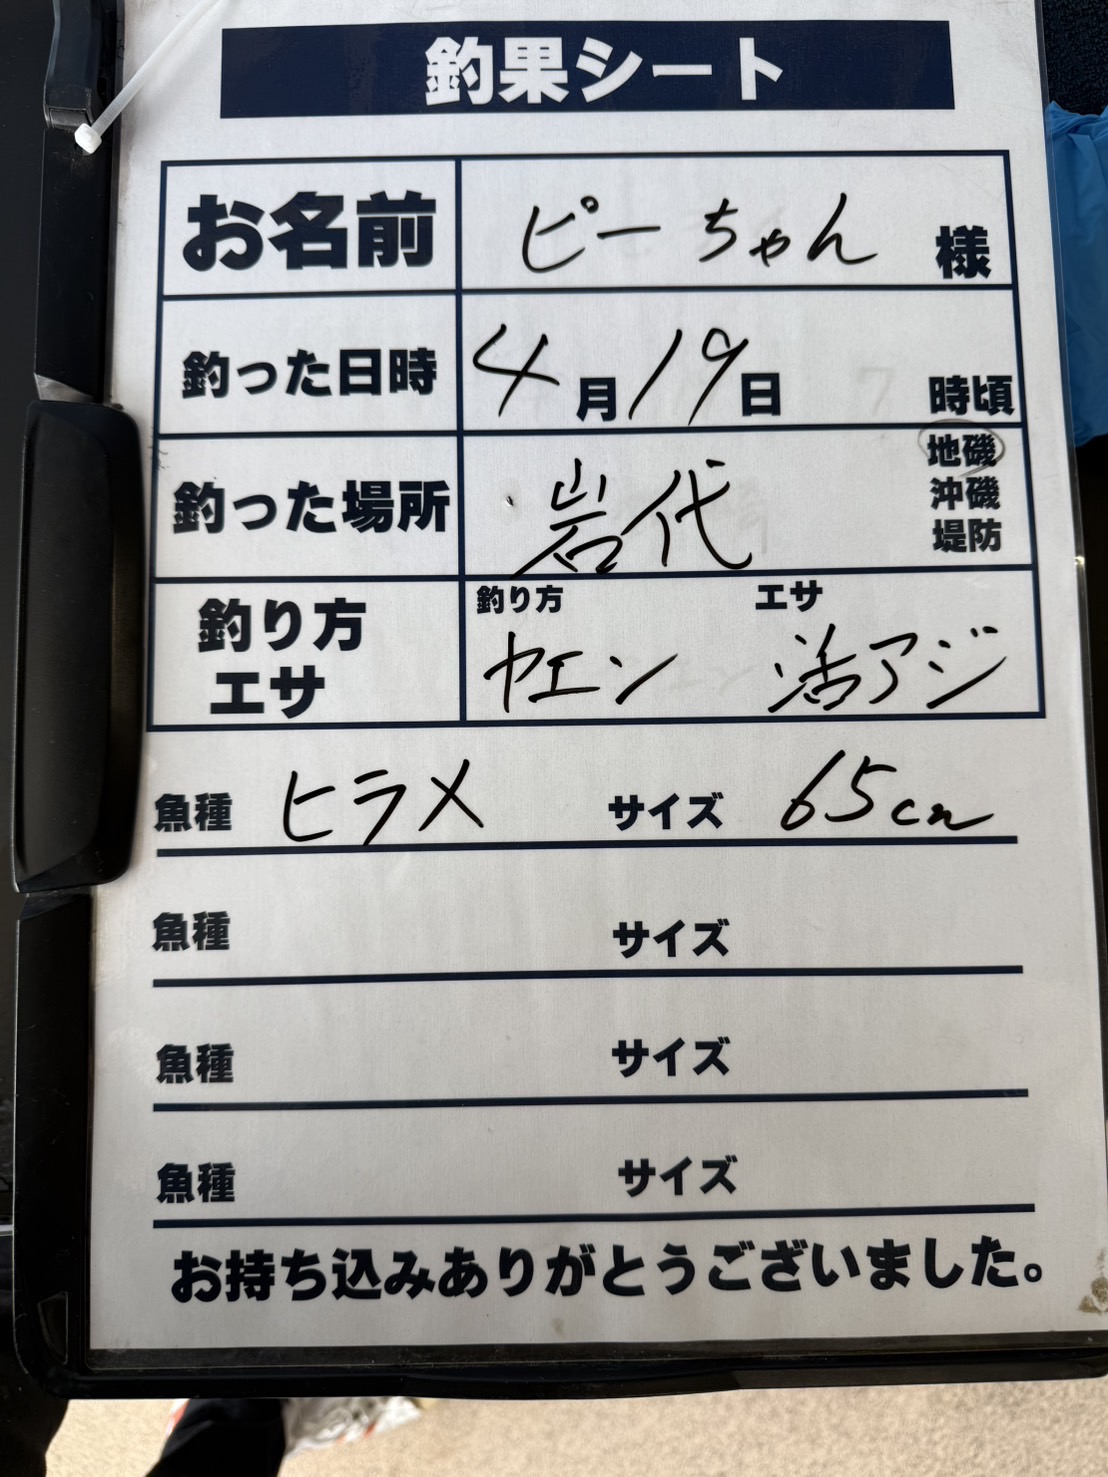 釣果シート
お名前 ピーちゃん 様
釣った日時 4月19日 時頃
釣った場所 岩代 地磯
沖磯
堤防
釣り方 エサ
釣り方
エサ
ヤエン 活アジ
魚種 ヒラメ サイズ 65cm
魚種 サイズ
魚種 サイズ
魚種 サイズ
お持ち込みありがとうございました。